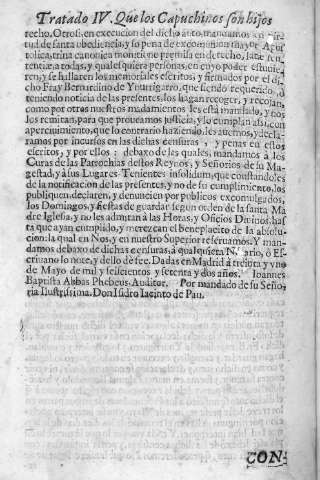 Tratado IV. Que los Capuchinos son hijos
recho. Otrosi, en execucion del dicho auto, mandamos en vir-
tud de santa obediencia, y so pena de excomunion mayor Apos
tolica, trina canonica monitione premissa en derecho, latæ sen-
tentiæ a todas, y qualesquiera personas, en cuyo poder estuuie-
ren, y se hallaren los memoriales escritos, y firmados por el di-
cho Fray Bernardino de Yturrigarro, que siendo requerido, ò
teniendo noticia de las presentes, los hagan recoger, y recojan,
como por otros nuestros mandamientos les està mandado, y nos
los remitan, para que proueamos justicia, y lo cumplan assi, con
apercimiento, que lo contrario haziendo, les auemos, y decla-
ramos por incursos en dichas censuras, y penas en estos
escritos, y por ellos; debaxo de las quales, mandamos à los
Curas de las Parrochias destos Reynos, y Señorios de la Ma-
gestad, y à sus Lugares-Tenientes insolidum, que constandoles
de la notificacion de las presentes, y no de su cumplimiento, los
publiquen, declaren, y denuncien por publicos excomulgados,
los Domingos, y fiestas de guardar segun orden de la santa Ma
dre Iglesia, y no les admitan à las Horas, y Oficios Diuinos, has
ta que ayan cumplido, y merezcan el beneplacito de la absolu-
cion: la qual en Nos, y en nuestro Superior reseruamos. Y man-
damos debaxo de dichas censuras, à qualquiera N. ario, ò Es-
criuano lo note, y dello de fee. Dadas en Madrid à treinta y vno
de Mayo de mil y seiscientos y setenta y dos años. Ioannes
Baptista Abbas Phebeus. Auditor. Por mandado de su Seño-
ria Ilustrissima. Don Isidro Iacinto de Pau.
CON-